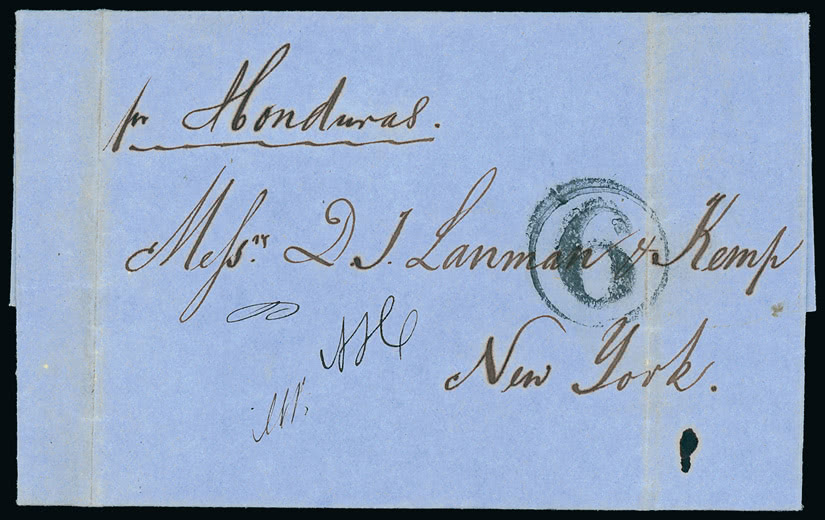 pr Honduras.
Messrs. D. T. Lanman & Kemp
6
New York.